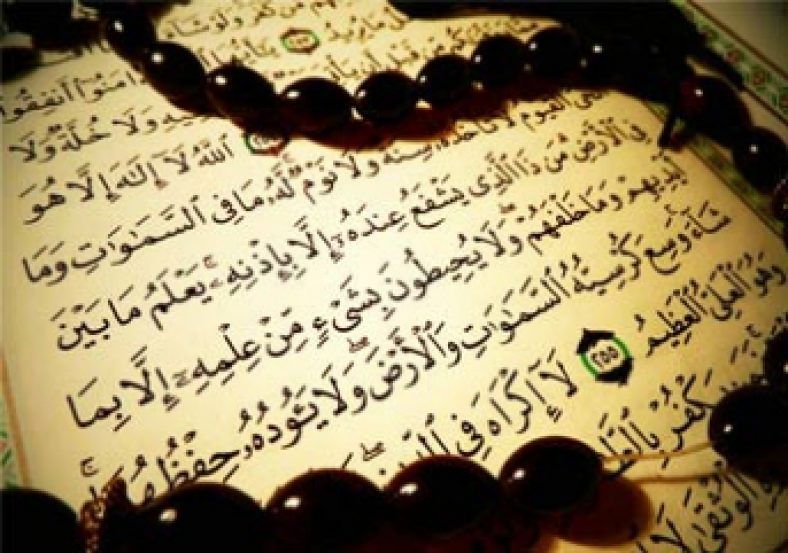 مَّن كَفَرَ وَلَوْ شَآءَ
مَا يُرِيدُ ٢٥٣ يَٰٓأَيُّهَا
ءَامَنُوٓا۟ أَنفِقُوا۟ مِن قَبْلِ أَن
وَلَا خُلَّةٌ وَلَا
ٱللَّهُ لَآ إِلَٰهَ إِلَّا هُوَ
ٱلْقَيُّومُ لَا تَأْخُذُهُۥ سِنَةٌ وَلَا نَوْمٌ لَّهُۥ مَا فِى ٱلسَّمَٰوَٰتِ وَمَا
فِى ٱلْأَرْضِ مَن ذَا ٱلَّذِى يَشْفَعُ عِندَهُۥٓ إِلَّا بِإِذْنِهِۦ يَعْلَمُ مَا بَيْنَ
أَيْدِيهِمْ وَمَا خَلْفَهُمْ وَلَا يُحِيطُونَ بِشَىْءٍ مِّنْ عِلْمِهِۦٓ إِلَّا بِمَا
شَآءَ وَسِعَ كُرْسِيُّهُ ٱلسَّمَٰوَٰتِ وَٱلْأَرْضَ وَلَا يَـُٔودُهُۥ حِفْظُهُمَا
وَهُوَ ٱلْعَلِىُّ ٱلْعَظِيمُ ٢٥٥ لَآ إِكْرَاهَ فِى ٱلدِّينِ
يَكْفُرْ
ٱلْوُثْقَىٰ لَا